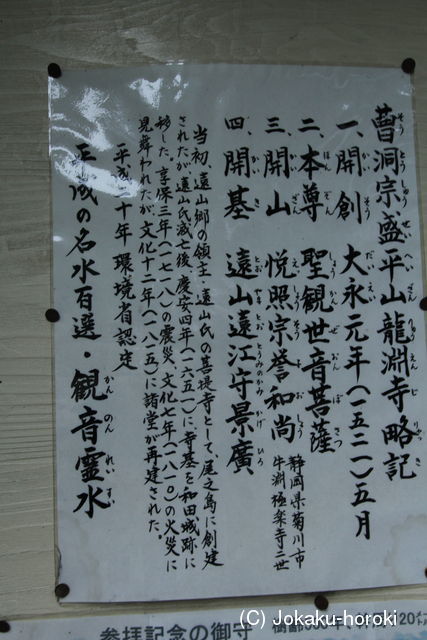 曹洞宗盛平山龍淵寺略記
一、開創 大永元年(一五二一)五月
二、本尊 聖観世音菩薩
三、開山 悦照宗誉和尚 静岡県菊川市
牛渕極楽寺二世
四、開基 遠山遠江守景廣
当初、遠山郷の領主・遠山氏の菩提寺として、尾之島に創建
されたが、遠山氏滅亡後、慶安四年(一六五一)に寺基を和田城跡に
移した。享保三年(一七一八)の震災、文化七年(一八一〇)の火災に
見舞われたが、文化十二年(一八一五)に諸堂が再建された。
平成二十年 環境省認定
平成の名水百選・観音霊水
参拝記念の御守
(C) Jokaku-horoki